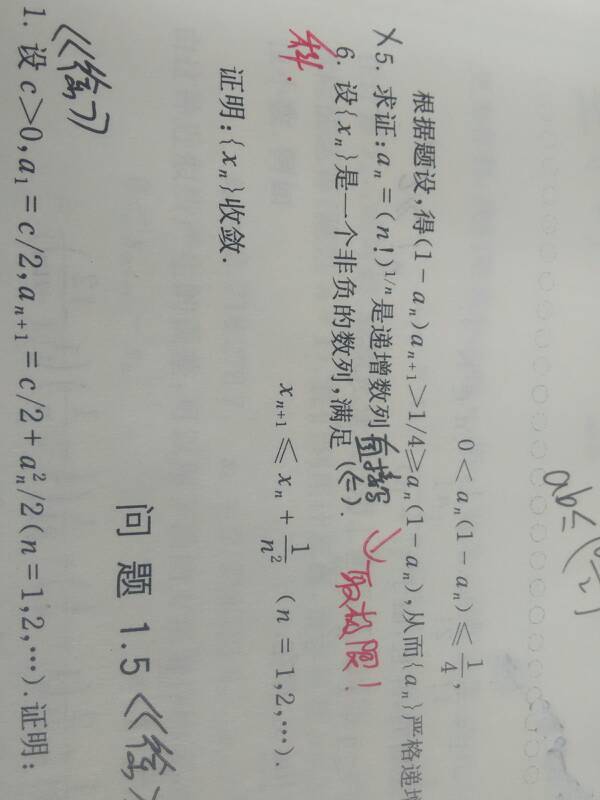 ab≤(
0 < a_n(1 - a_n) ≤ 1/4,
根据题设,得(1 - a_n)a_{n+1} > 1/4 ≥ a_n(1 - a_n),从而{a_n}严格递增
× 5. 求证:a_n = (n!)^{1/n}是递增数列.
6. 设{x_n}是一个非负的数列,满足
x_{n+1} ≤ x_n + 1/n² (n = 1,2,…).
证明:{x_n}收敛.
问 题 1.5
1. 设 c > 0, a_1 = c/2, a_{n+1} = c/2 + a_n²/2 (n = 1,2,…). 证明: